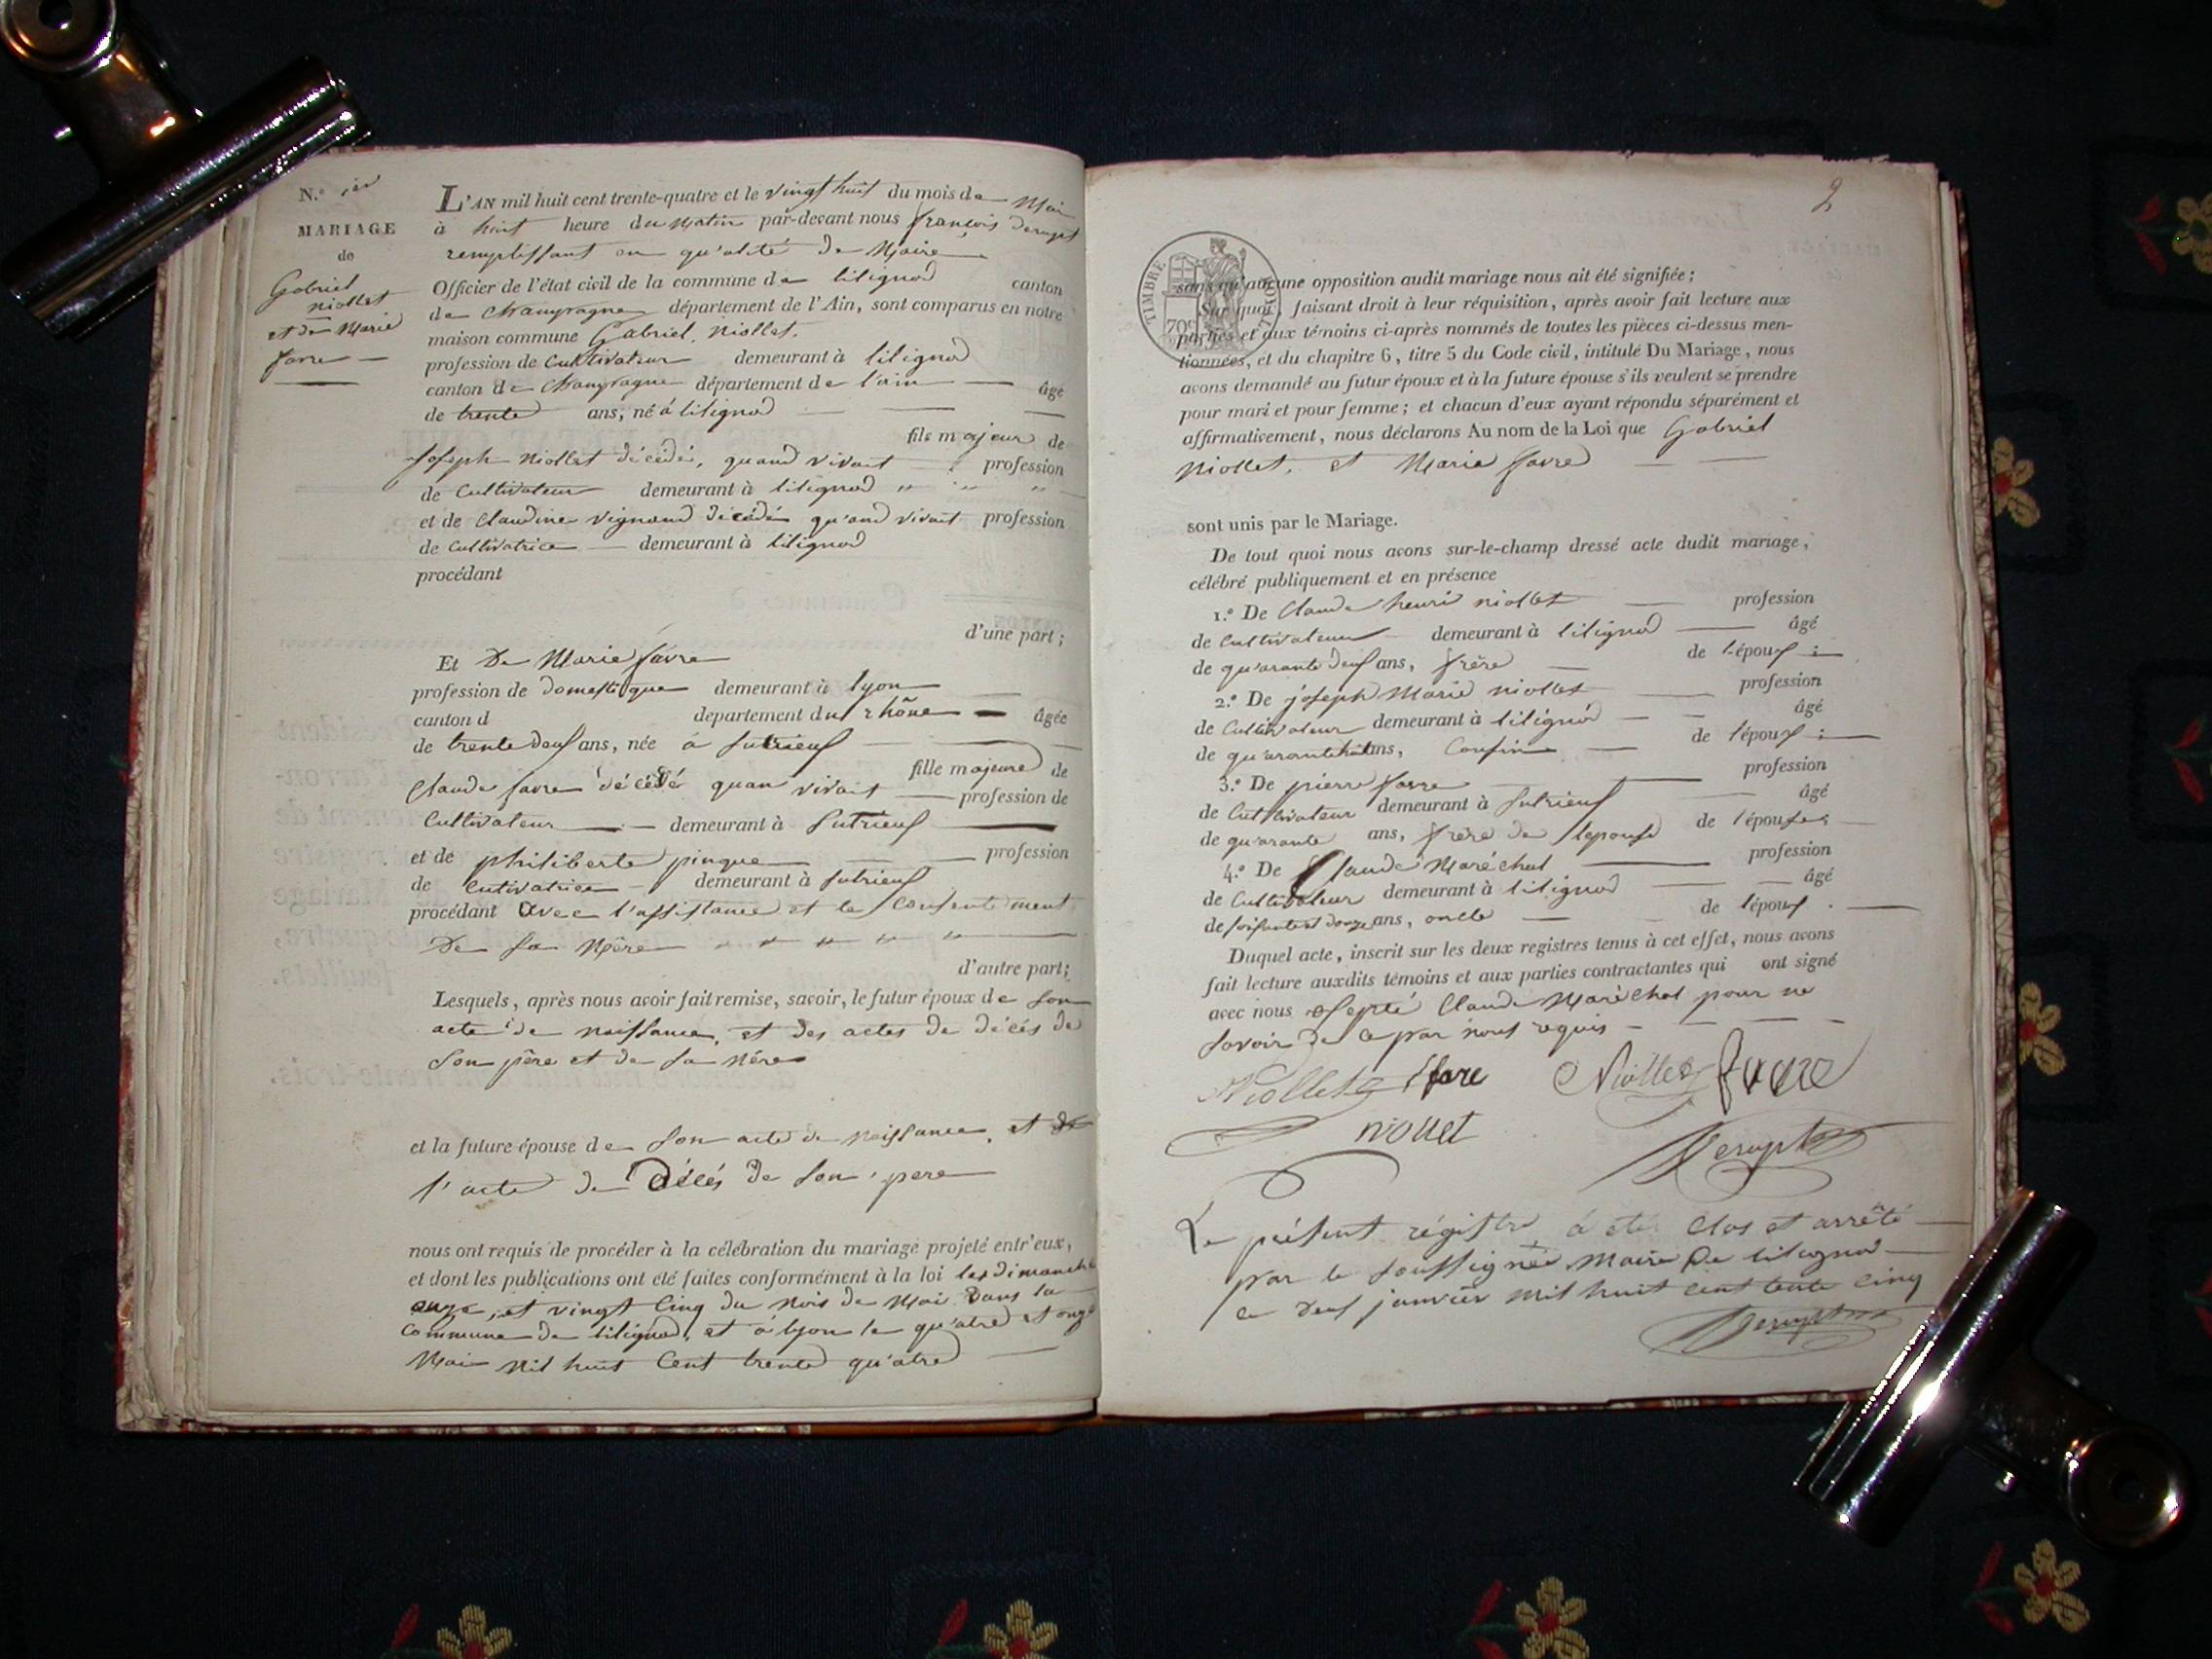 N.º
MARIAGE
de
Gabriel
niollet
et de Marie
favre
L'AN mil huit cent trente-quatre et le vingt huit du mois de Mai
à huit heure du Matin par-devant nous françois
remplissant en qu'alité de Maire
Officier de l'état civil de la commune de lilignod canton
de Champagne département de l'Ain, sont comparus en notre
maison commune Gabriel Niollet.
profession de Cultivateur demeurant à lilignod
canton de Champagne département de l'ain âgé
de trente ans, né à lilignod
fils majeur de
Joseph Niollet décédé, quand vivait profession
de Cultivateur demeurant à lilignod " " "
et de Claudine vignand décédé qu'and vivait profession
de Cultivatrice demeurant à lilignod
procédant
d'une part ;
Et De Marie favre
profession de domestique demeurant à lyon
canton d département du rhône âgée
de trente deux ans, née à Sutrieux
fille majeure de
Claude favre décédé quan vivait profession de
Cultivateur demeurant à Sutrieux
et de philiberte pinque profession
de Cutivatrice demeurant à Sutrieux
procédant avec l'assistance et le Consentement
De Sa Mère " " " " "
d'autre part;
Lesquels, après nous avoir fait remise, savoir, le futur époux de Son
acte de naissance, et des actes de décés de
Son père et de Sa Mére
et la future épouse de Son acte de Naissance, et de
l'acte de Décés de Son pere
nous ont requis de procéder à la célébration du mariage projeté entr'eux,
et dont les publications ont été faites conformément à la loi les dimanche
onze, et vingt Cinq du Mois de Mai Dans la
Commune de lilignod, et à lyon le qu'atre et onze
Mai Mil huit Cent trente qu'atre
2
TIMBRE ROYAL
70c
sans qu'aucune opposition audit mariage nous ait été signifiée ;
Sur quoi, faisant droit à leur réquisition, après avoir fait lecture aux
parties et aux témoins ci-après nommés de toutes les pièces ci-dessus men-
tionnées, et du chapitre 6, titre 5 du Code civil, intitulé Du Mariage, nous
avons demandé au futur époux et à la future épouse s'ils veulent se prendre
pour mari et pour femme ; et chacun d'eux ayant répondu séparément et
affirmativement, nous déclarons Au nom de la Loi que Gabriel
Niollet. et Marie favre
sont unis par le Mariage.
De tout quoi nous avons sur-le-champ dressé acte dudit mariage,
célébré publiquement et en présence
1.º De Claude henri niollet profession
de Cultivateur demeurant à lilignod âgé
de qu'arante deux ans, frère de l'époux ;
2.º De joseph Marie niollet profession
de Cultivateur demeurant à lilignod âgé
de qu'arante huit ans, Cousin de l'époux ;
3.º De pierre favre profession
de Cultivateur demeurant à Sutrieux âgé
de qu'arante ans, frère de lepouse de l'épouse ;
4.º De Claude Maréchal profession
de Cultivateur demeurant à lilignod âgé
de soixante et douze ans, oncle de l'époux .
Duquel acte, inscrit sur les deux registres tenus à cet effet, nous avons
fait lecture auxdits témoins et aux parties contractantes qui ont signé
avec nous excepté Claude Maréchal pour ne
Savoir de ce par nous requis
Niollet favre Niollet favre
niollet
Le présent régistre à eté Clos et arrêté
par le Soussigné Maire De lilignod
ce deux janvier mil huit cent trente cinq